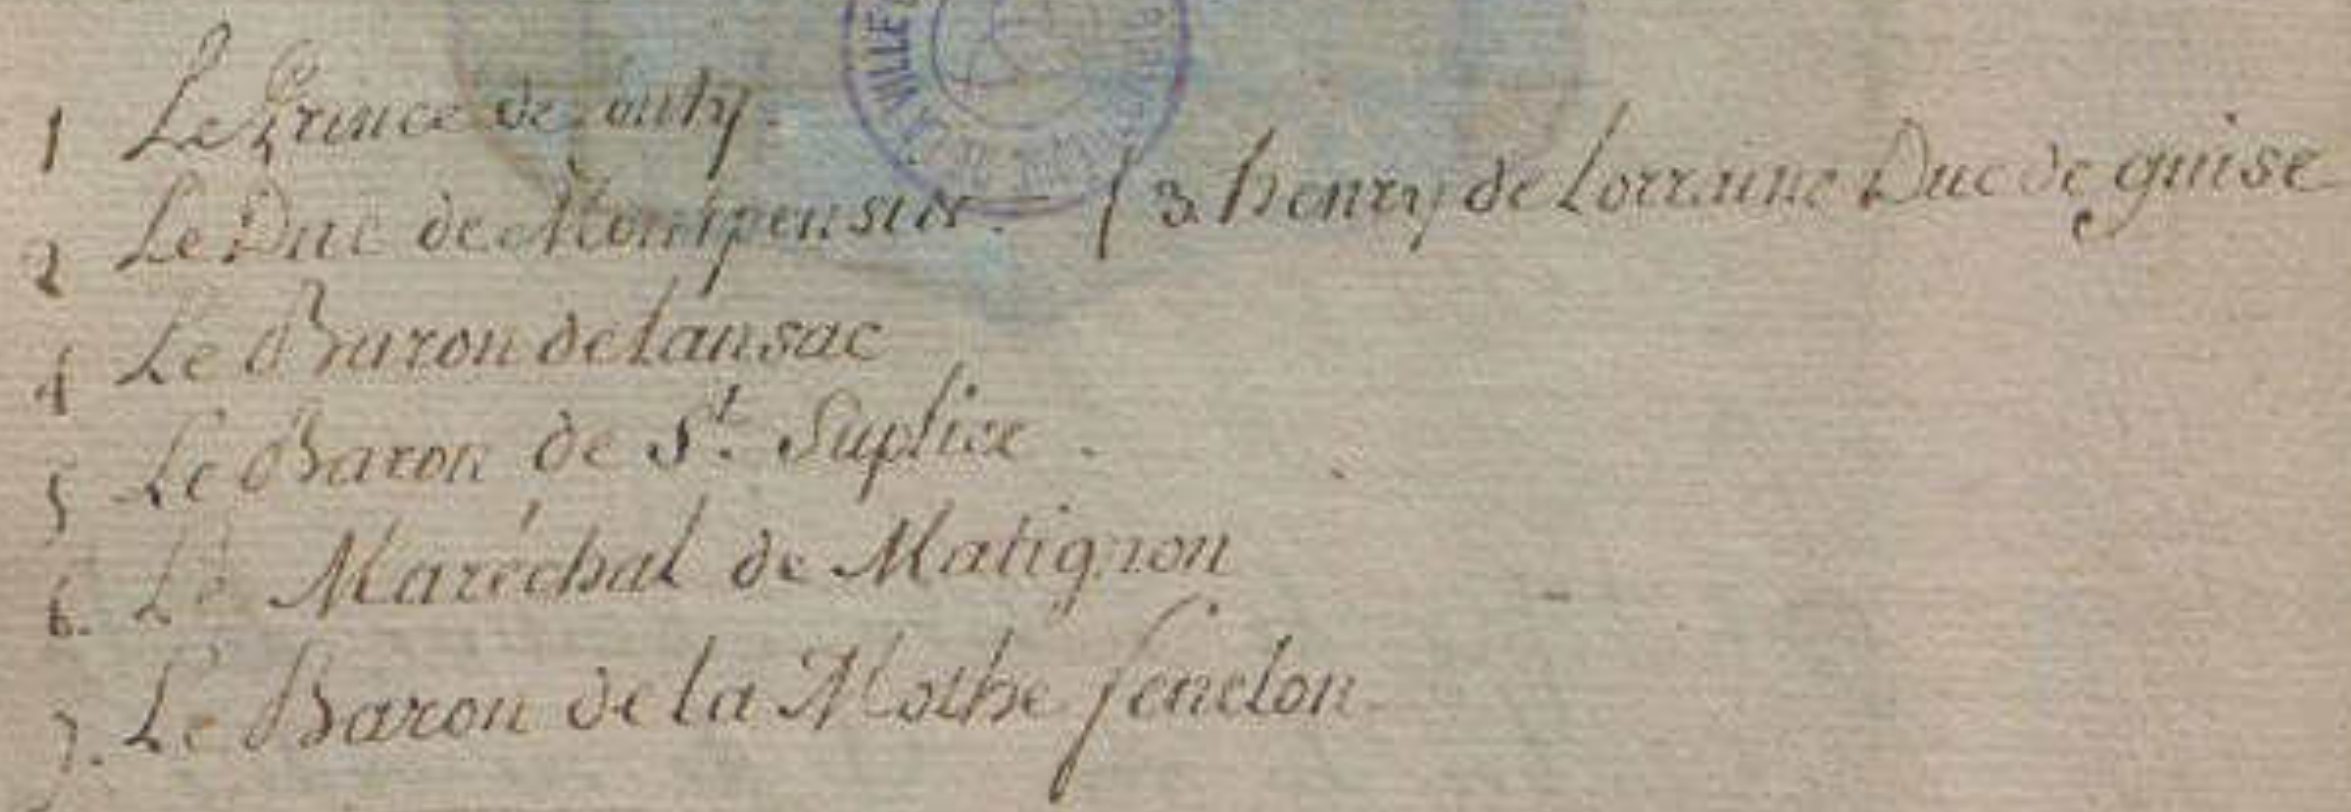 1 Le Prince de Conty.
2 Le Duc de Montpensier. — ( 3. henry de Lorraine Duc de guise
4 Le Baron de lansac
5 Le Baron de St. Suplice.
6. Le Maréchal de Matignon
7. Le Baron de la Mothe fenelon.
LA VILLE